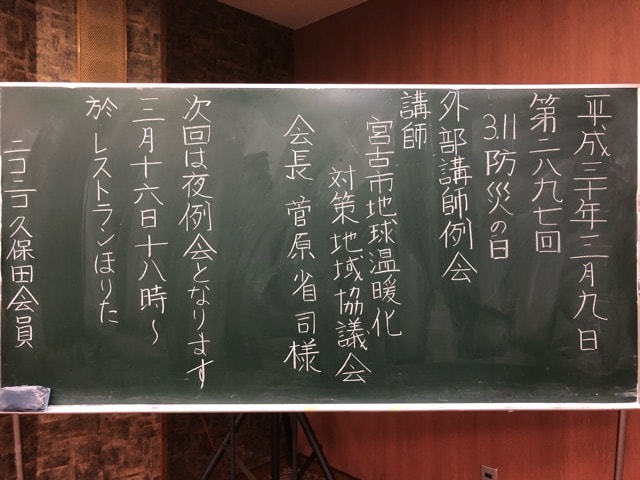 平成三十年三月九日
第二八九七回
3.11防災の日
外部講師例会
講師
宮古市地球温暖化
対策地域協議会
会長 菅原省司様
次回は夜例会となります
三月十六日十八時～
於 レストランほりた
ニコニコ久保田会員